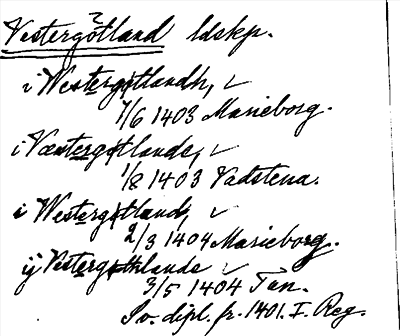 Vestergötland ldskp.
i Westergøtlandh, ✓
7/6 1403 Marieborg.
i Væstergøtlande, ✓
1/8 1403 Vadstena.
i Westergøtland, ✓
2/3 1404 Marieborg.
ij Vestergøthlande ✓
3/5 1404 Tan.
Sv. dipl. fr. 1401. I. Reg.